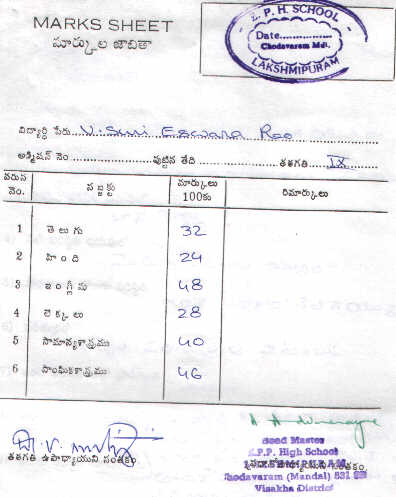 MARKS SHEET
మార్కుల జాబితా
Z. P. H. SCHOOL
Date................
Chodavaram Mdl.
LAKSHMIPURAM
విద్యార్థి పేరు V. Suri Eswara Rao
అడ్మిషన్ నెం పుట్టిన తేది తరగతి IX
వరుస నెం. సబ్జెక్టు మార్కులు 100కు రిమార్కులు
1 తెలుగు 32
2 హింది 24
3 ఇంగ్లీషు 48
4 లెక్కలు 28
5 సామాన్యశాస్త్రము 40
6 సాంఘికశాస్త్రము 46
తరగతి ఉపాధ్యాయుని సంతకం
Head Master
Z.P.P. High School
LAKSHMIPURAM
Chodavaram (Mandal) 531
Visakha District